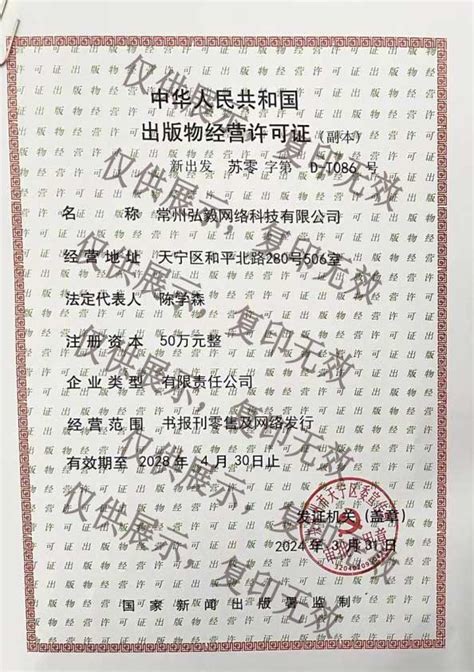 中华人民共和国
出版物经营许可证(副本)
新出发 苏零 字第 D-T086 号
名 称 常州弘毅网络科技有限公司
经营地址 天宁区和平北路280号506室
法定代表人 陈学森
注册资本 50万元整
企业类型 有限责任公司
经营范围 书报刊零售及网络发行
有效期至 2028 年 4 月 30日止
发证机关(盖章)
2024 年 3 月 31 日
国家新闻出版署监制
仅供展示，复印无效
仅供展示，复印无效
仅供展示，复印无效
仅供展示，复印无效
仅供展示，复印无效